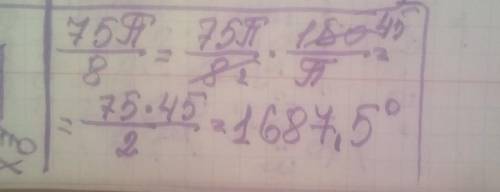 75π/8 = 75π/8 2 · 180 45/π =
= 75·45/2 = 1687,5°